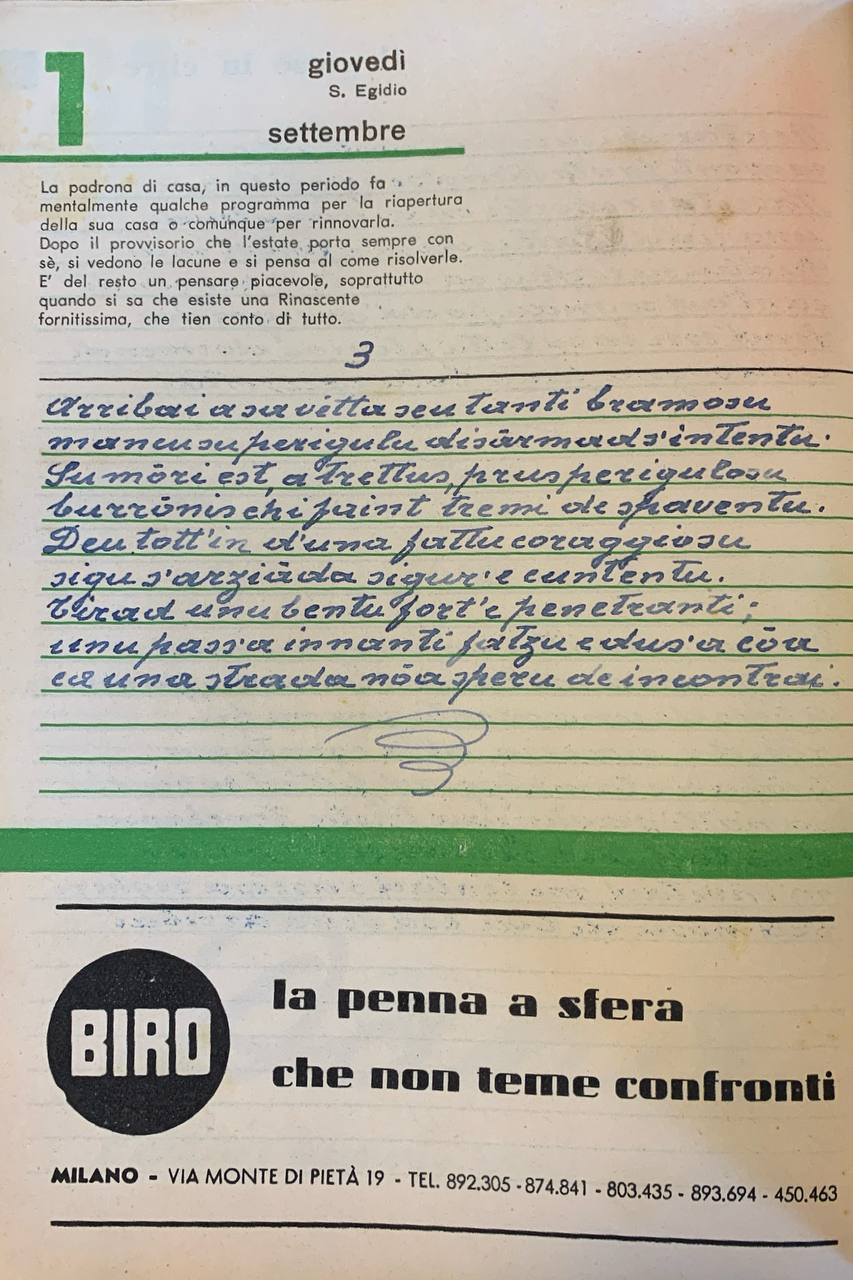 1
giovedì
S. Egidio
settembre
La padrona di casa, in questo periodo fa
mentalmente qualche programma per la riapertura
della sua casa o comunque per rinnovarla.
Dopo il provvisorio che l'estate porta sempre con
sè, si vedono le lacune e si pensa al come risolverle.
E' del resto un pensare piacevole, soprattutto
quando si sa che esiste una Rinascente
fornitissima, che tien conto di tutto.
3
Arribai a sa vetta seu tanti bramosu
mancu su perigulu disārmad s'intentu.
Su mōri est, a trettus, prus perigulosu
burrōnis chi faint tremi de spaventu.
Deu tott'in d'una fattu coraggiosu
sigu s'arziāda sigur'e cuntentu.
Tirad unu bentu fort'e penetranti;
unu pass'a innanti fatzu e dus'a cōa
ca una strada nōa speru de incontrai.
BIRO
la penna a sfera
che non teme confronti
MILANO - VIA MONTE DI PIETÀ 19 - TEL. 892.305 - 874.841 - 803.435 - 893.694 - 450.463